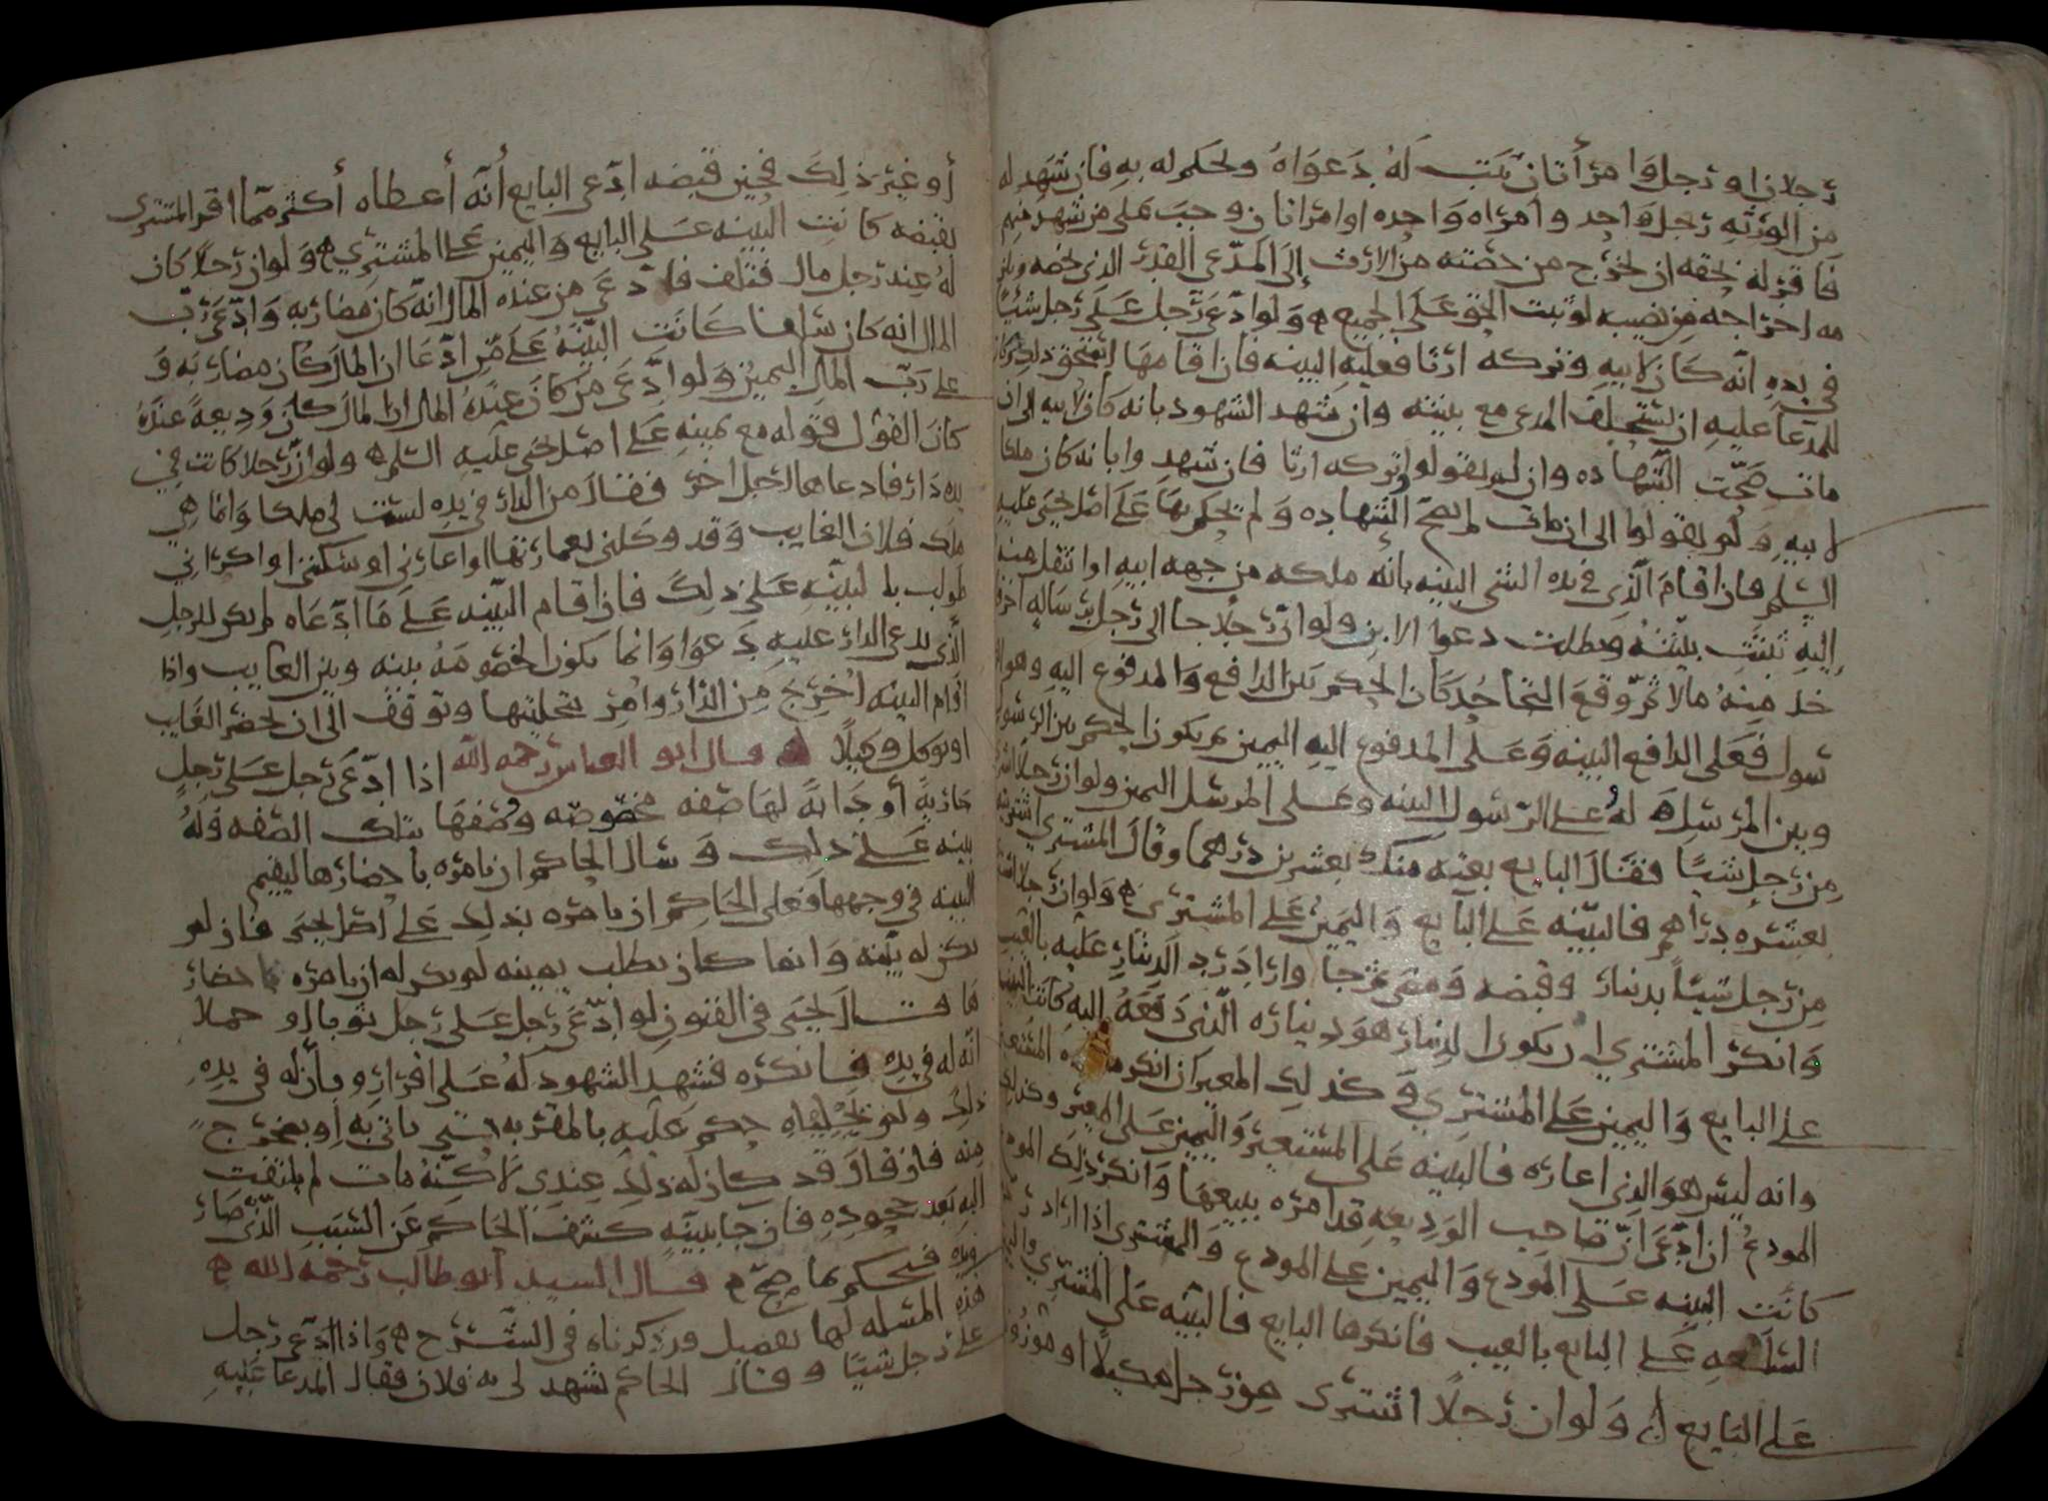 رجلان او رجل وامرأتان ثبت له دعواه وحكم له به فان شهد له
من الورثه رجل واحد وامراه واحده او امراتان وجب على من شهد منهم
فاقر له بحقه ان يخرج من حصته من الارث إلى المدّعي القدر الذي يخصه
مه اخراجه من نصيبه لو ثبت الحق على الجميع ه ولو ادّعى رجل على رجل شيئا
في يده انّه كان لابيه وتركه ارثا فعليه البينه فان اقامها استحق ذلك
للمدعا عليه ان يستحلف المدعي مع بينته وان شهد الشهود بانه كان لابيه الى ان
مات صحّت الشهاده وان لم يقولوا وتركه ارثا فان شهدوا بانه كان ملكا
لابيه ولم يقولوا الى ان مات لم تصحّ الشهاده ولم يحكم بها على اصل يحيى عليه
السلم فان اقام الّذي في يده الشي البينه بانه ملكه من جهه ابيه او انتقل منه
إليه ثبتت بيّنته وبطلت دعوا الابن ولو انّ رجلا جا الى رجل برساله اخر
خذ منه مالا ثمّ وقع التجاحد كان الحكم بين الدافع والمدفوع اليه وهو الر
سول فعلى الدافع البينه وعلى المدفوع اليه اليمين ثم يكون الحكم بين الرسول
وبين المرسل له على الرسول البينه وعلى المرسل اليمين ولو ان رجلا اشترى
من رجل شيئا فقال البايع بعته منك بعشرين درهما وقال المشتري اشتريته
بعشره دراهم فالبيّنه على البايع واليمين على المشتري ه ولو ان رجلا اشترى
من رجل شيئا بدينار وقبضه ومضى ثم جا واراد رد الدينار عليه بالعيب
وانكر المشتري ان يكون الدينار هو ديناره الّذي دفعه اليه كانت البينه
على البايع واليمين على المشتري وكذلك المعير ان انكر المستعير
وانه ليس هو الذي اعاره فالبينه على المستعير واليمين على المعير وكذلك
المودع ان ادّعى انّ صاحب الوديعه قد امره ببيعها وانكر ذلك المودع
كانت البينه على المودع واليمين على المودع والمشتري اذا اراد رد
السلعه على البايع بالعيب فانكرها البايع فالبيّنه على المشتري واليمين
على البايع ه ولو ان رجلا اشترى من رجل مكيلا او موزونا
أو غير ذلك فحين قبضه ادّعى البايع أنّه أعطاه أكثر ممّا اقر المشتري
بقبضه كانت البينه على البايع واليمين على المشتري ه ولو ان رجلا كان
له عند رجل مال فتلف فادعى من عنده المال انّه كان مضاربه وادّعى ربّ
المال انه كان سلفا كانت البيّنه على من ادّعا ان المال كان مضاربه و
على ربّ المال اليمين ولو ادّعى من كان عنده المال ان المال كان وديعة عنده
كان القول قوله مع يمينه على اصل يحيى عليه السلم ه ولو ان رجلا كانت في
يده دار فادعاها لرجل اخر فقال من الدار في يده ليست لي ملكا وانما هي
ملك فلان الغايب وقد وكلني بعمارتها او اعارني او سكنني او اكراني
طولب بالبينه على ذلك فان اقام البيّنه على ما ادّعاه لم يكن للرجل
الّذي يدعي الدار عليه دعوا وانما يكون الخصومه بينه وبين الغايب واذا
اقام البينه اُخرج من الدار واُمر بتخليتها وتوقف الى ان يحضر الغايب
او يوكل وكيلا ه قال ابو العباس رحمه الله اذا ادّعى رجل على رجل
جارية أو دابة لها صفه مخصوصه وصفها بتلك الصفه وله
بينه على ذلك وسال الحاكم ان يامره باحضارها ليقيم
البينه في وجهها فعلى الحاكم ان يامره بذلك على اصل يحيى فان لم
يكن له بيّنه وانما كان يطلب يمينه لم يكن له ان يامره باحضار
ها قال يحيى في الفنون لو ادّعى رجل على رجل ثوبا او حملا
انّه له في يده فانكره فشهد الشهود له على اقراره بأنّه له في يده
ذلك ولم يخليّاه حكم عليه بالمقرّ به حتى ياتي به او يخرج
منه فان قال قد كان له ذلك عندي لاكنّه مات لم يلتفت
اليه بعد جحوده فان جا ببينه كشف الحاكم عن السبب الّذي صار
فحكم بما صحّ ه قال السيد ابو طالب رحمه الله ه
هذه المسله لها تفصيل قد ذكرناه في الشرح ه واذا ادّعى رجل
على رجل شيئا وقال الحاكم يشهد لي به فلان فقال المدعا عليه